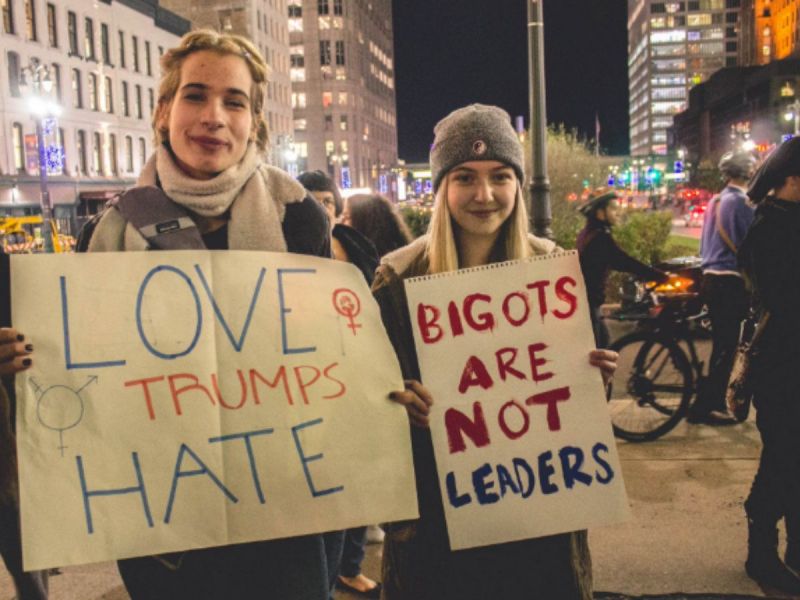 LOVE
TRUMPS
HATE
BIGOTS
ARE
NOT
LEADERS